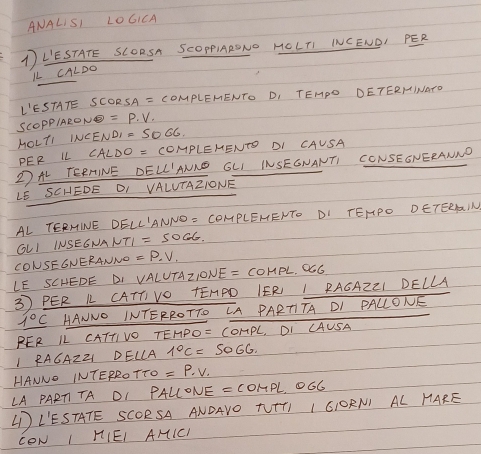 ANALISI LOGICA
1) L'ESTATE SCORSA SCOPPIARONO MOLTI INCENDI PER
IL CALDO
L'ESTATE SCORSA = COMPLEMENTO DI TEMPO DETERMINATO
SCOPPIARONO = P.V.
MOLTI INCENDI = SOGG.
PER IL CALDO = COMPLEMENTO DI CAUSA
2) AL TERMINE DELL'ANNO GLI INSEGNANTI CONSEGNERANNO
LE SCHEDE DI VALUTAZIONE
AL TERMINE DELL'ANNO = COMPLEMENTO DI TEMPO DETERMIN
GLI INSEGNANTI = SOGG.
CONSEGNERANNO = P.V.
LE SCHEDE DI VALUTAZIONE = COMPL. OGG
3) PER IL CATTIVO TEMPO IERI I RAGAZZI DELLA
1°C HANNO INTERROTTO LA PARTITA DI PALLONE
PER IL CATTIVO TEMPO = COMPL. DI CAUSA
I RAGAZZI DELLA 1°C = SOGG.
HANNO INTERROTTO = P.V.
LA PARTITA DI PALLONE = COMPL. OGG
4) L'ESTATE SCORSA ANDAVO TUTTI I GIORNI AL MARE
CON I MIEI AMICI